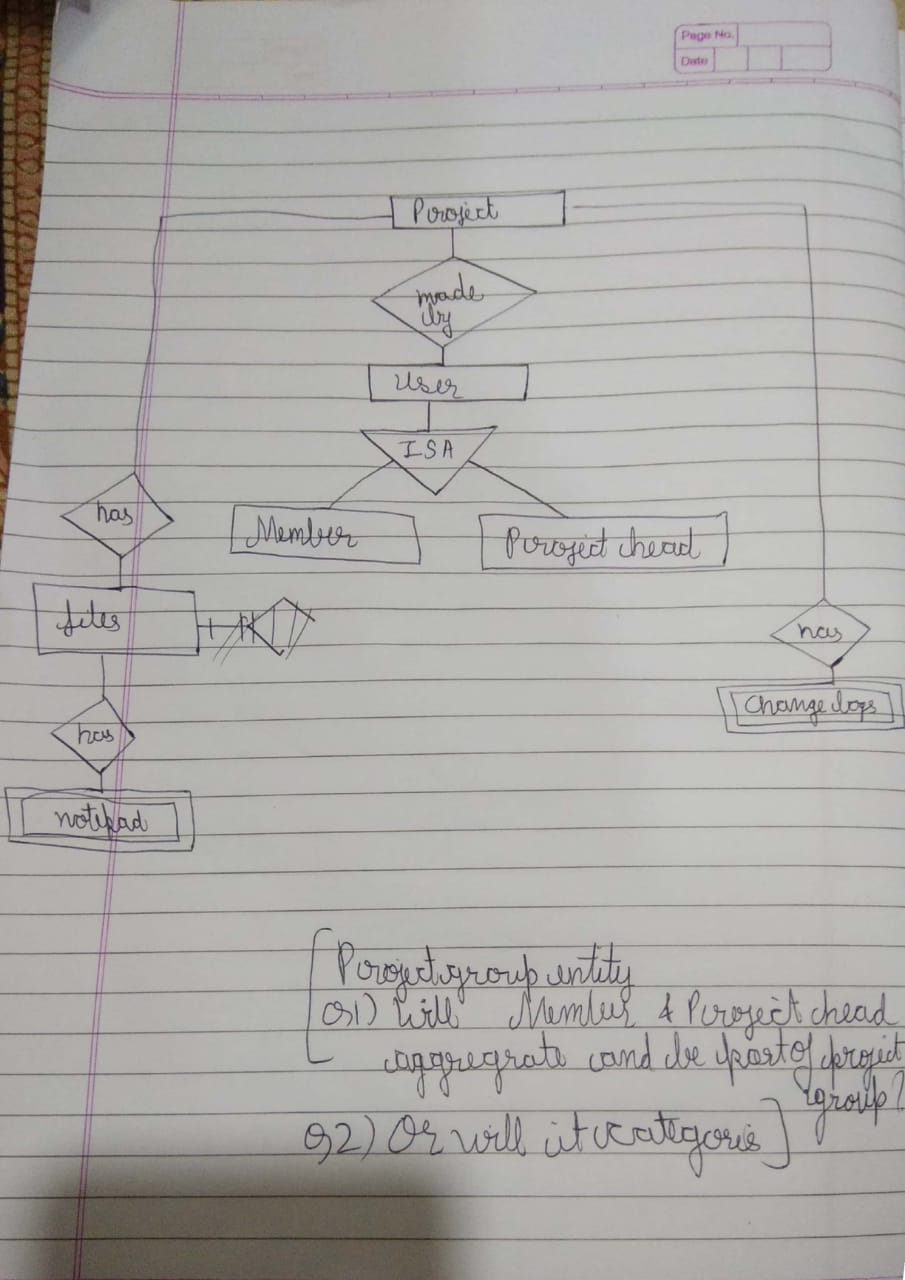 Page No.
Date
Project
made
by
User
ISA
has
Member
Project head
files
has
has
Change logs
notepad
Project group entity
Q1) Will Member & Project head
aggregrate and be part of project
group?
Q2) Or will it categoris